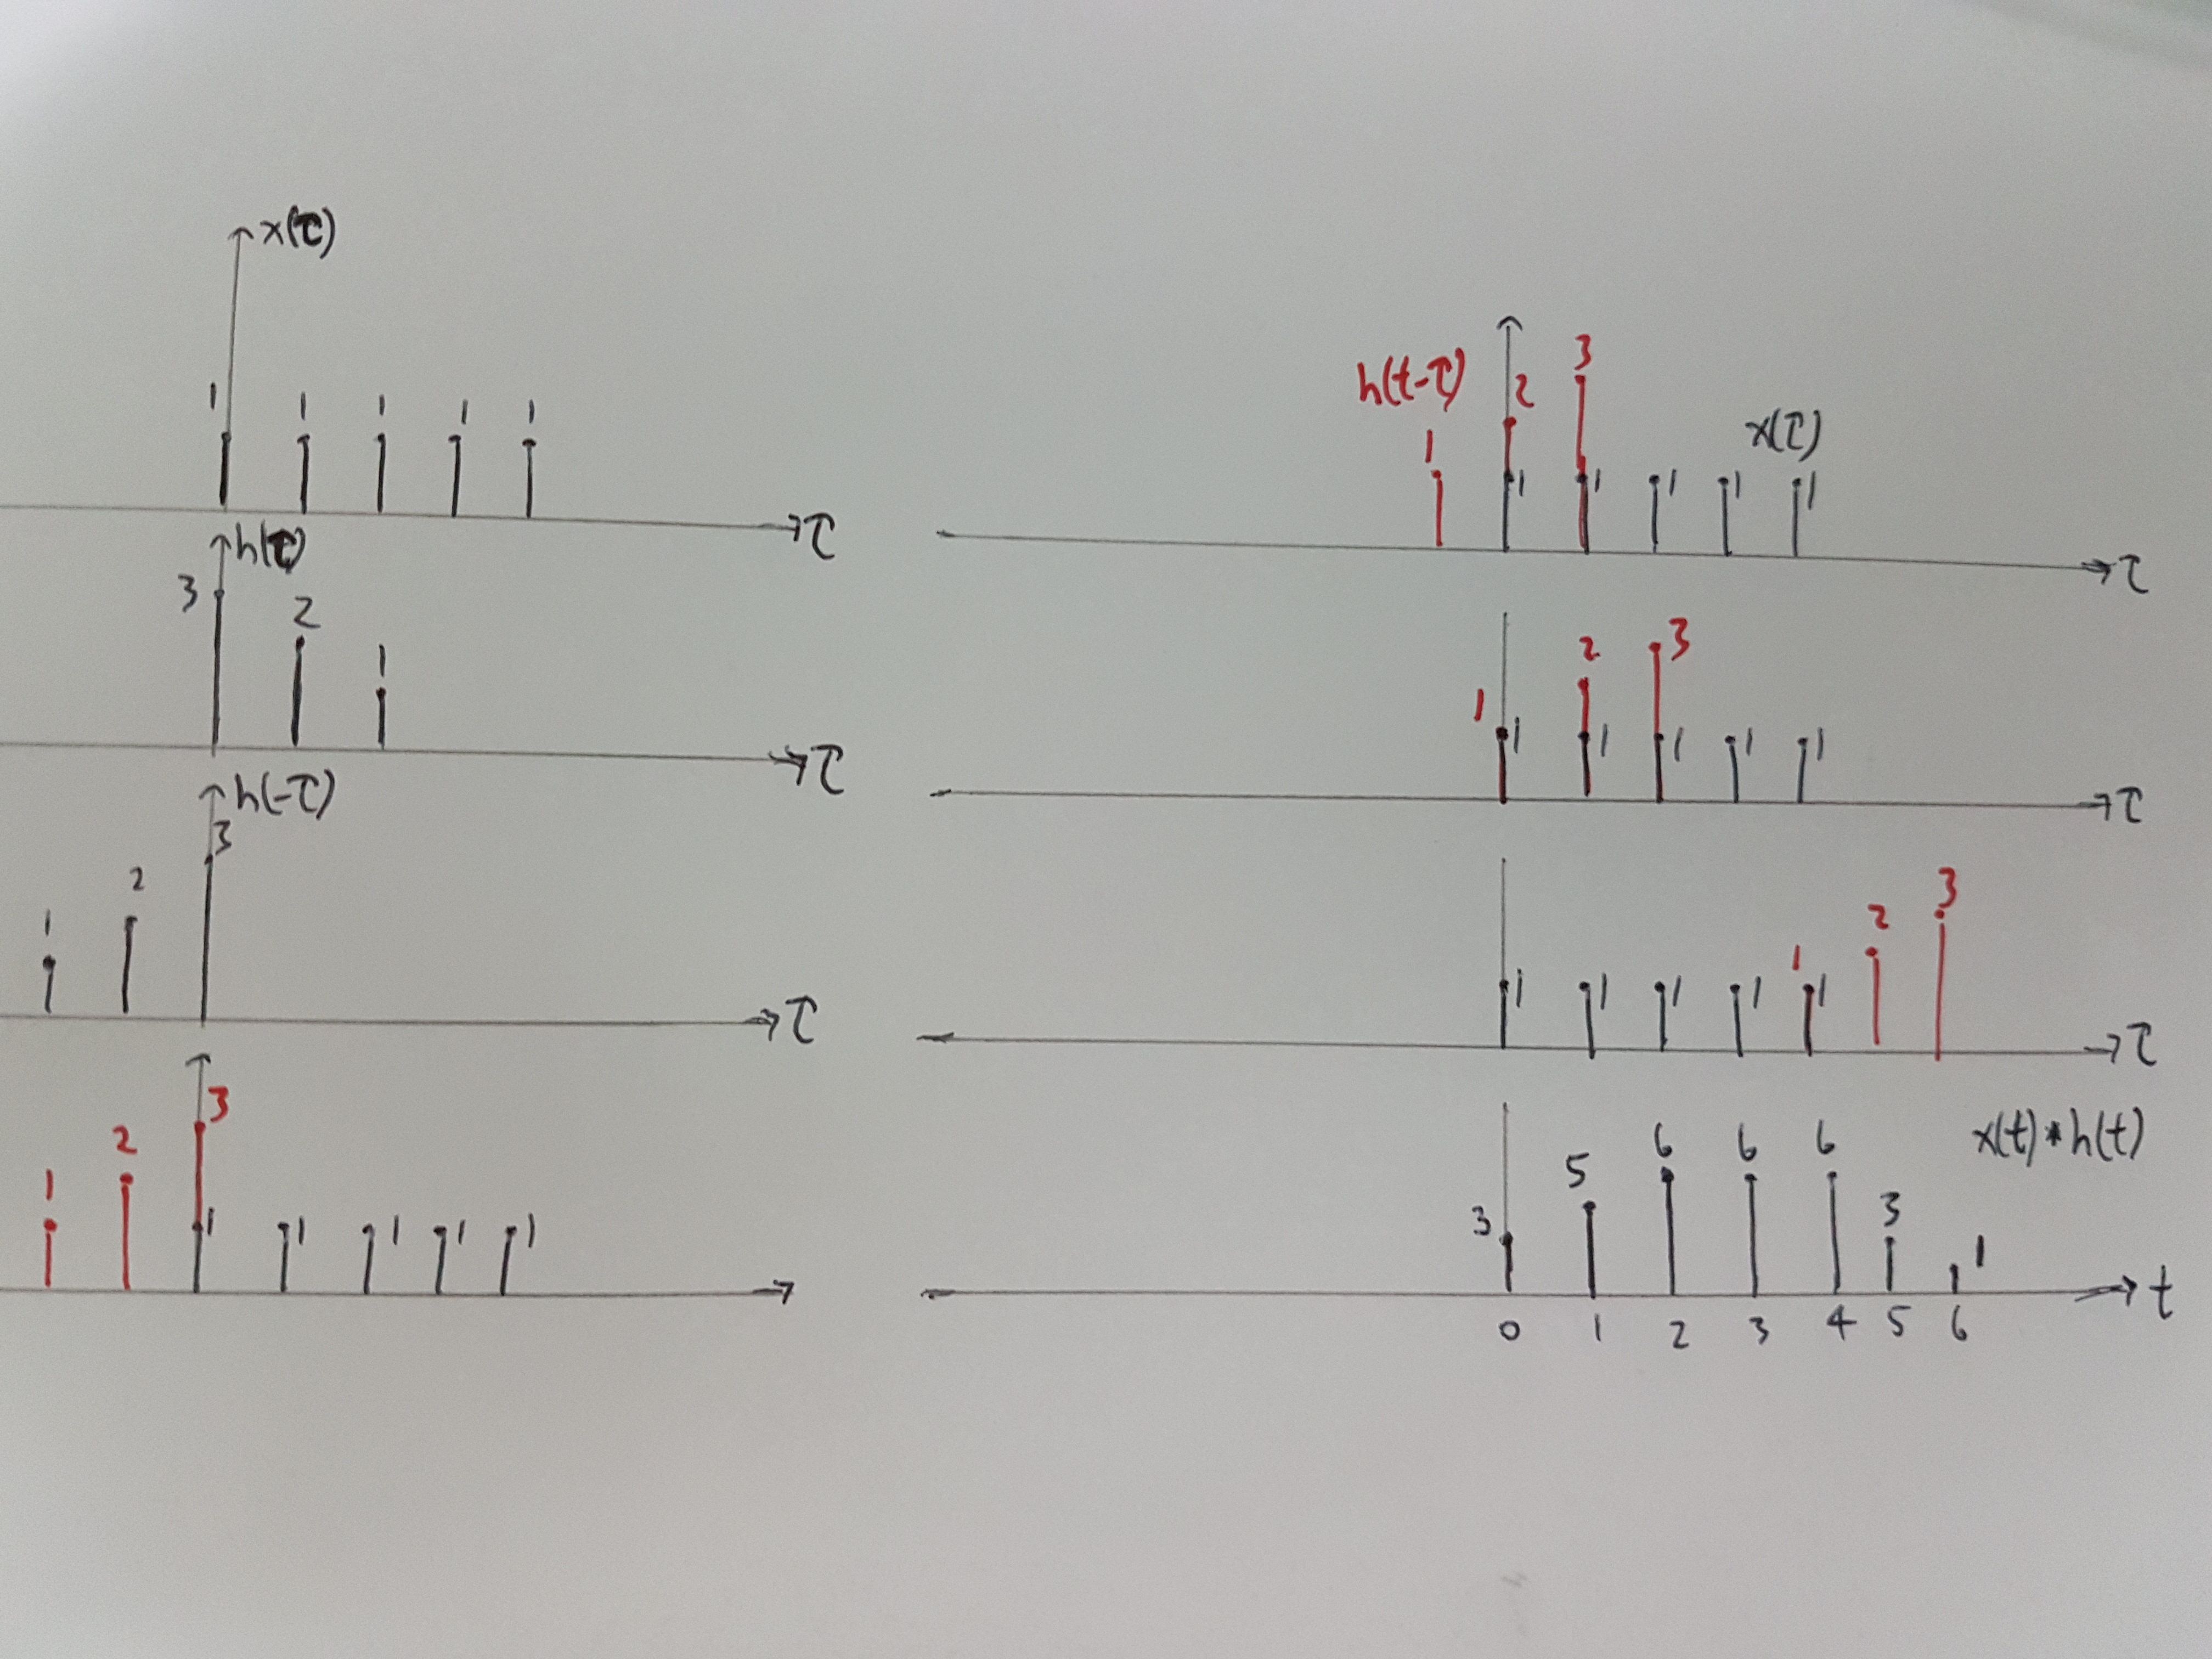 x(τ)
1 1 1 1 1
τ
h(τ)
3 2 1
τ
h(-τ)
1 2 3
τ
1 2 3
1 1 1 1 1
h(t-τ) 1 2 3
x(τ)
1 1 1 1 1
τ
1 2 3
1 1 1 1 1
τ
1 2 3
1 1 1 1 1
τ
x(t)*h(t)
3 5 6 6 6 3 1
t
0 1 2 3 4 5 6